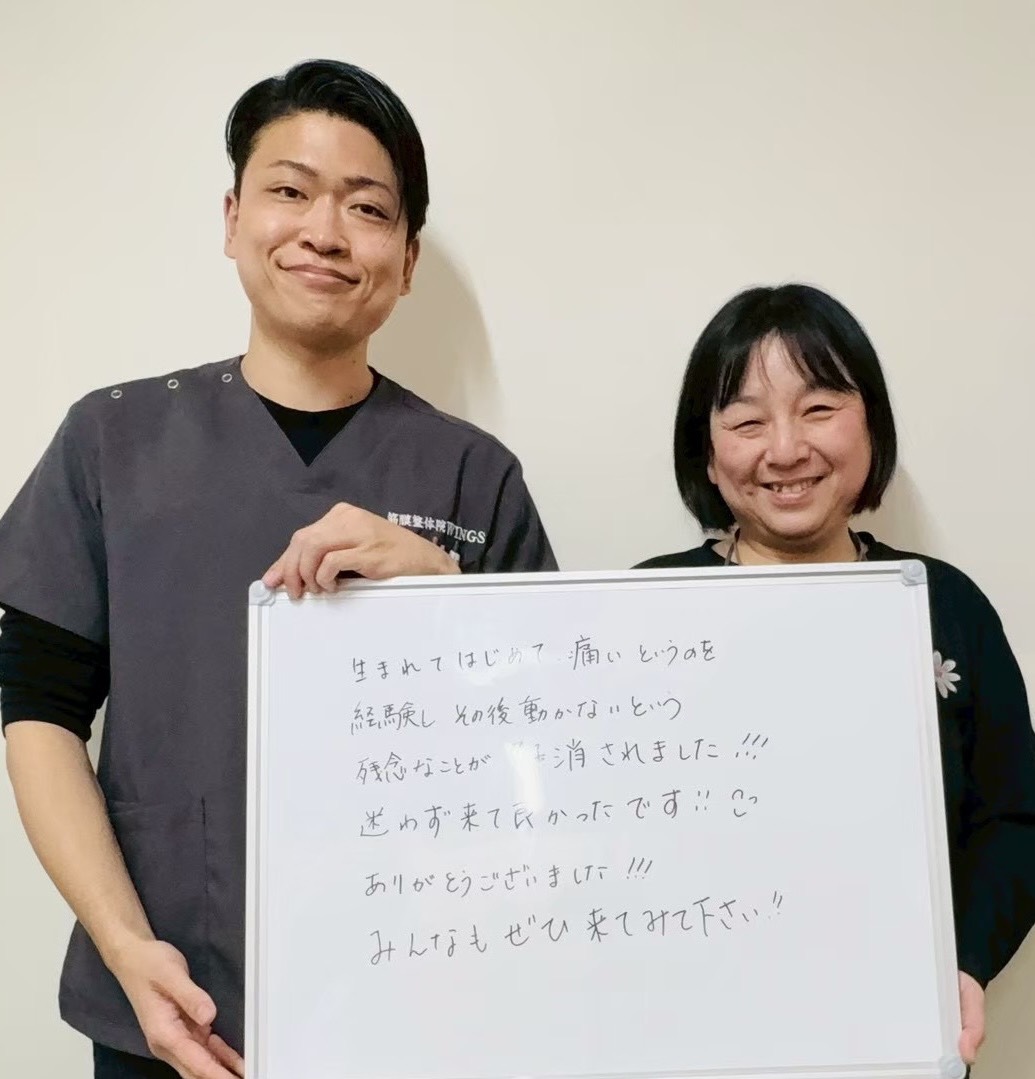 筋膜整体院WINGS
生まれてはじめて痛いというのを
経験しその後動かないという
残念なことが 消されました!!!
迷わず来て良かったです!!
ありがとうございました!!!
みんなもぜひ来てみて下さい!!